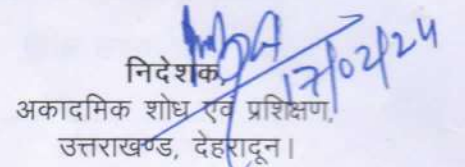 17/02/24
निदेशक,
अकादमिक शोध एवं प्रशिक्षण,
उत्तराखण्ड, देहरादून।